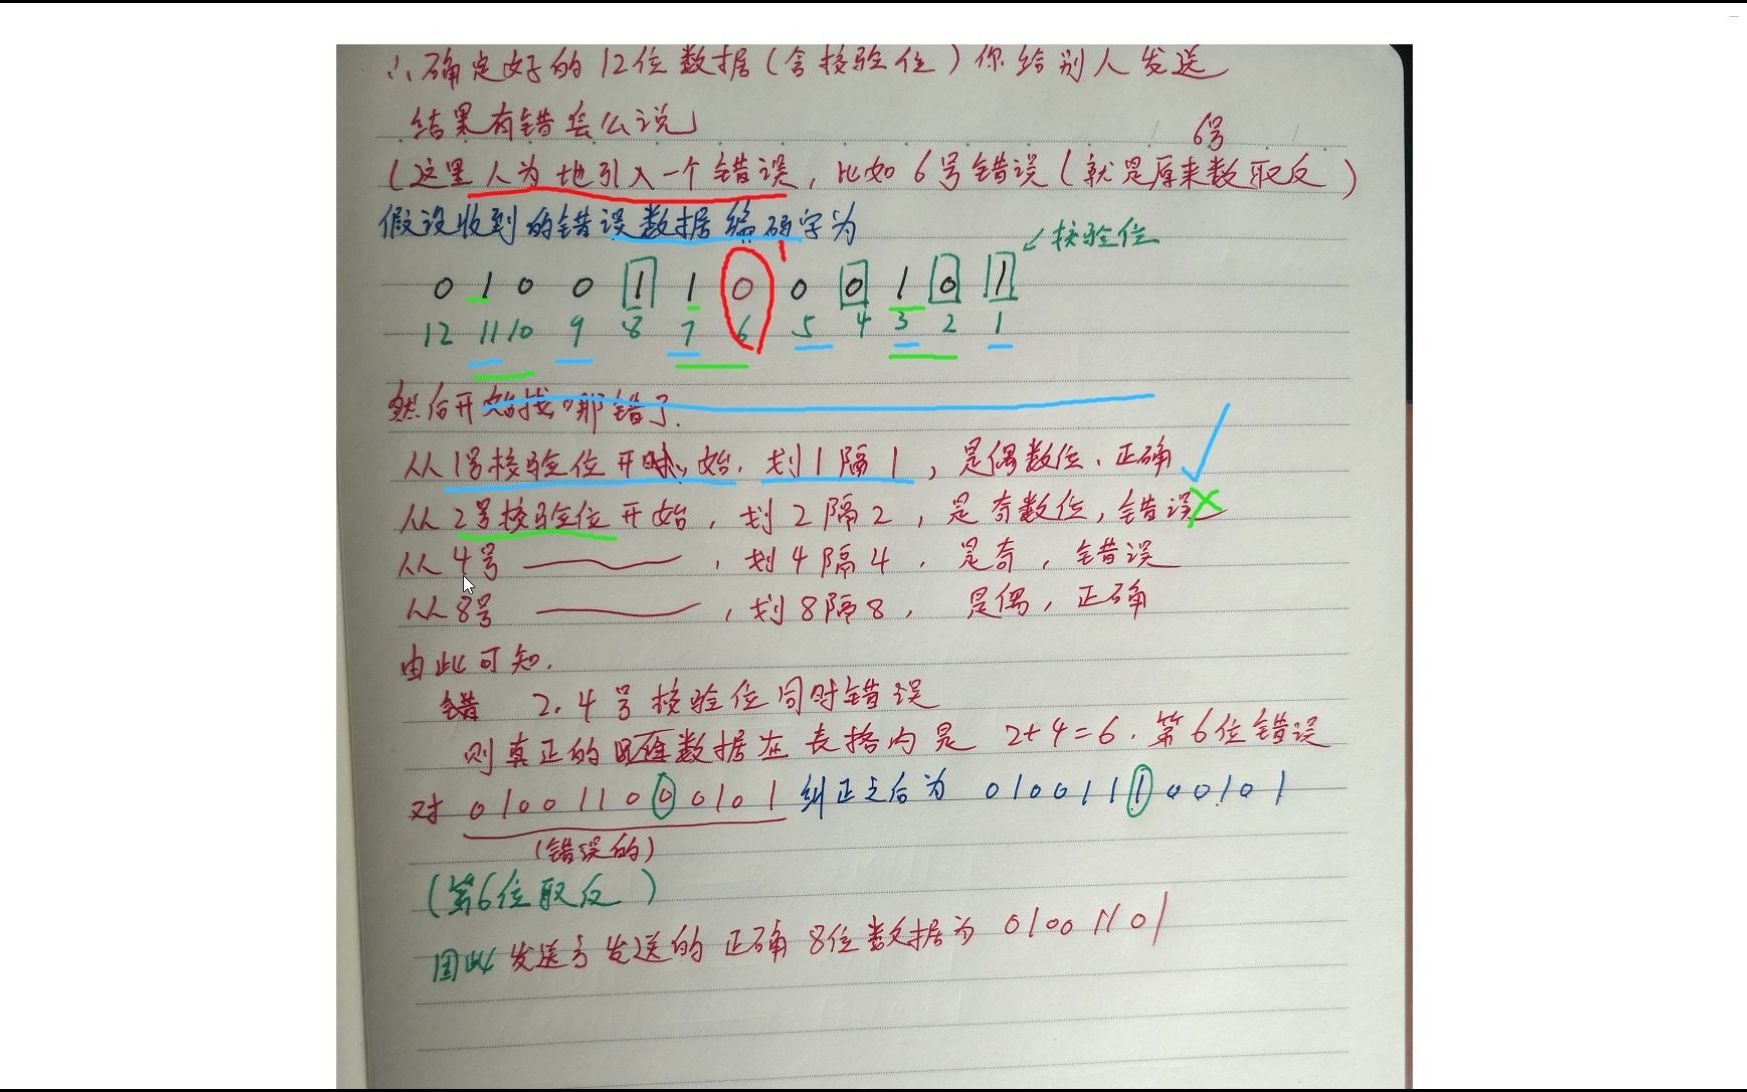 ∴确定好的12位数据(含校验位)你给别人发送
结果有错怎么说
6号
(这里人为地引入一个错误，比如6号错误(就是原来数取反)
假设收到的错误数据编码字为
↙校验位
1
0 1 0 0 1 1 0 0 0 1 0 1
12 11 10 9 8 7 6 5 4 3 2 1
然后开始找哪错了.
从1号校验位开始，划1隔1，是偶数位、正确
从2号校验位开始，划2隔2，是奇数位，错误
从4号 ，划4隔4，是奇，错误
从8号 ，划8隔8，是偶，正确
由此可知.
错 2.4号校验位同时错误
则真正的数据在表格内是 2+4=6.第6位错误
对 010011000101 纠正之后为 010011100101
(错误的)
(第6位取反)
因此发送方发送的正确8位数据为 01001101